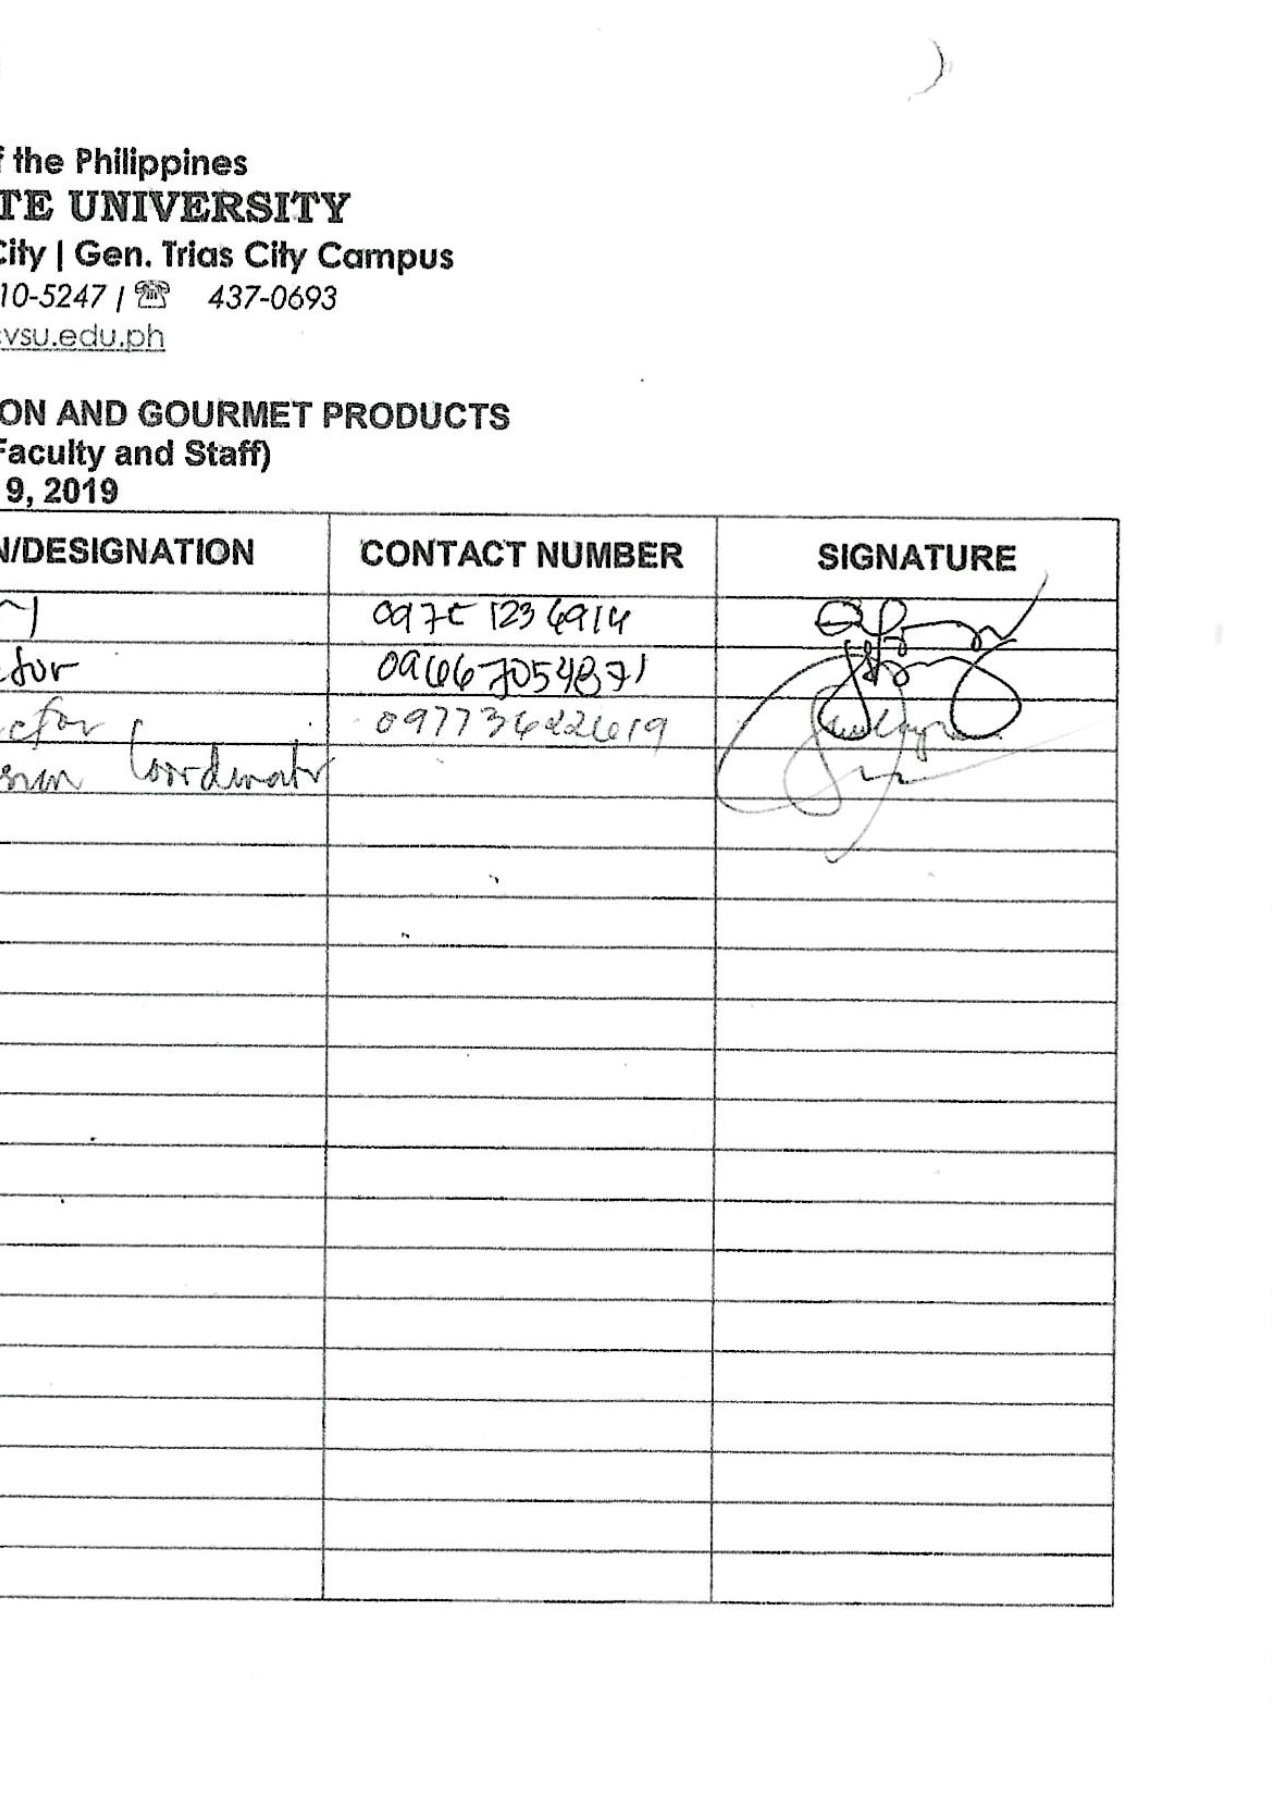 f the Philippines
TE UNIVERSITY
City | Gen. Trias City Campus
10-5247 / ☎ 437-0693
cvsu.edu.ph
ON AND GOURMET PRODUCTS
Faculty and Staff)
9, 2019
N/DESIGNATION CONTACT NUMBER SIGNATURE
09667054871
ctor 09773622619
Coordinator